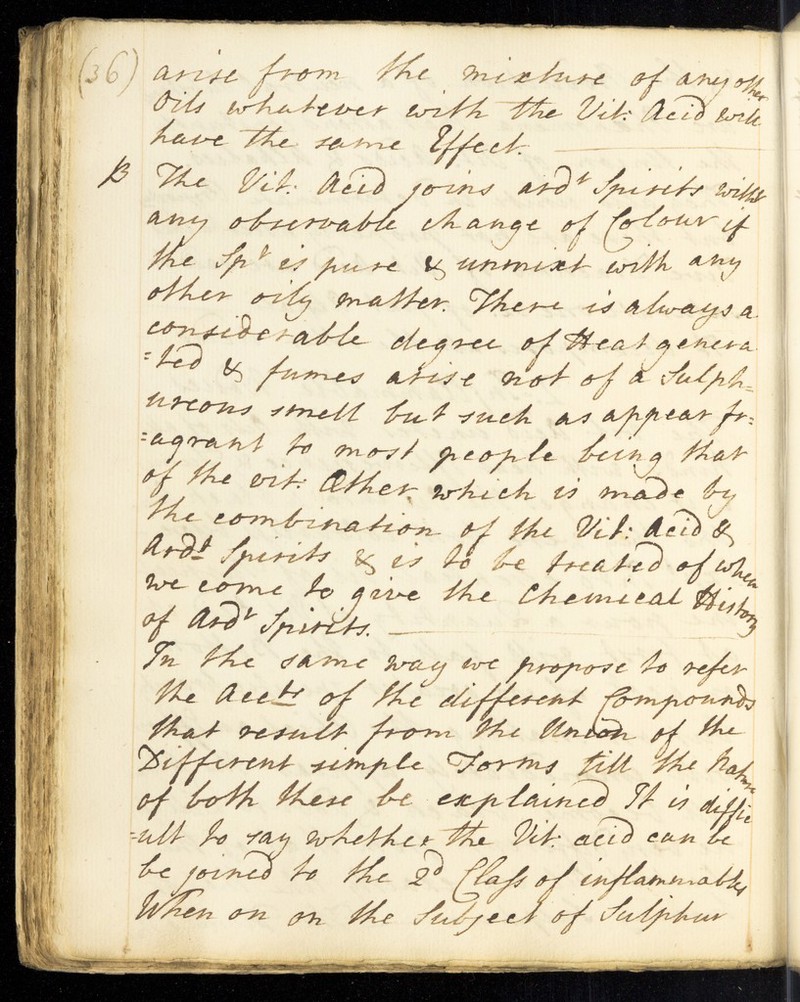 (36) arise from the mixture of any other
Oils whatever with the Vit: Acid will
have the same Effect.
B The Vit: Acid joins ard.t Spirits witht
any observable change of Colour if
the Sp.t is pure & unmixt with any
other oily matter. There is always a
considerable degree of Heat genera
=ted & fumes arise not of a Sulph=
ureous smell but such as appear fr=
=agrant to most people being that
of the vit: Æther which is made by
the combination of the Vit: Acid &
Ard.t Spirits & is to be treated of when
we come to give the Chemical History
of Ard.t Spirits.
In the same way we propose to refer
the Acc.ts of the different Compounds
that result from the Union of the
Different simple Forms till the Nature
of both these be explained It is diffic
=ult to say whether the Vit: acid can be
be joined to the 2.d Class of inflammables
When on on the Subject of Sulphur